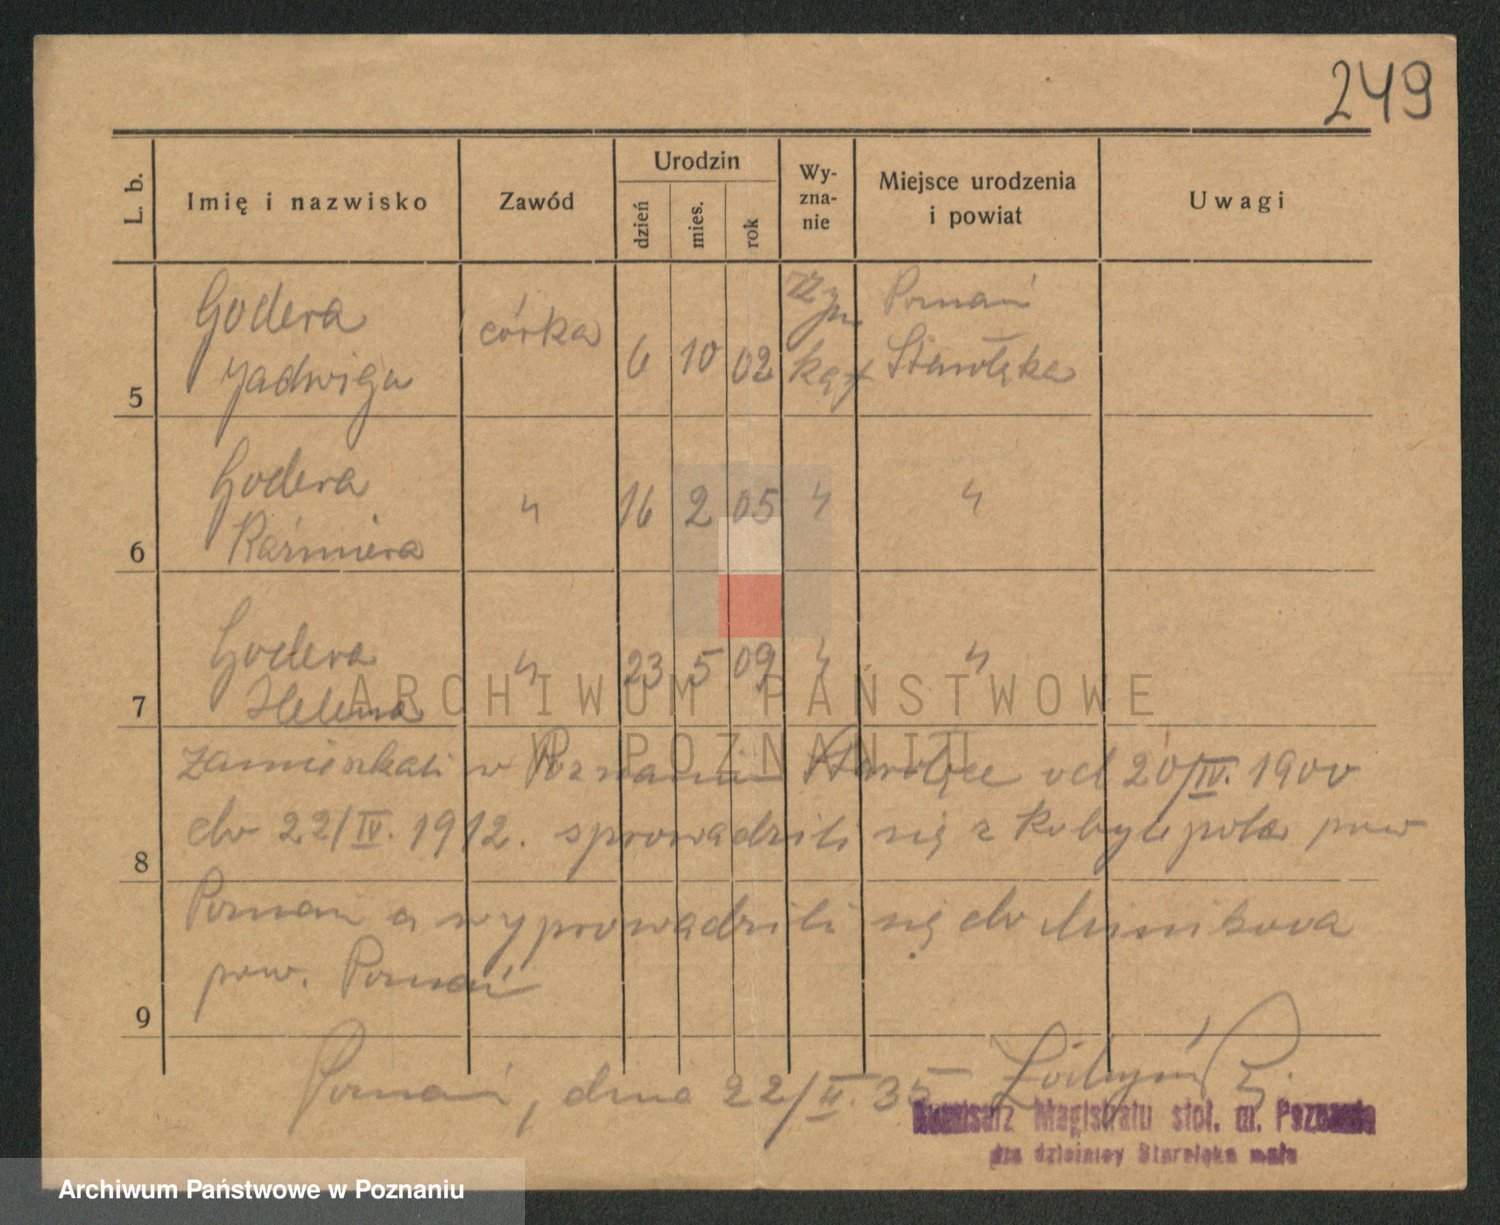 249
L. b.
Imię i nazwisko
Zawód
Urodzin
dzień
mies.
rok
Wy-
zna-
nie
Miejsce urodzenia
i powiat
Uwagi
5
Godera
Jadwiga
córka
6
10
02
Rzym
kat
Poznań
Starołęka
6
Godera
Kaźmiera
"
16
2
05
"
"
7
Godera
Helena
"
23
5
09
"
"
zamieszkali w Poznaniu Starołęce od 20/IV. 1900
8
do 22/IV. 1912. sprowadzili się z Kobylepola pow
Poznań a wyprowadzili się do
pow. Poznań
9
Poznań, dnia 22/II. 35
Komisarz Magistratu stoł. m. Poznania
dla dzielnicy Starołęka mała
ARCHIWUM PAŃSTWOWE
W POZNANIU
Archiwum Państwowe w Poznaniu